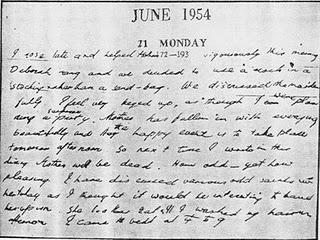 JUNE 1954
21 MONDAY
I rose late and helped Mother vigorously this morning
172—193
Deborah rang and we decided to use a rock in a
stocking rather than a sand-bag. We discussed the murder
fully. I feel very keyed up, as though I were plan
ning a surprise party. Mother has fallen in with everything
beautifully and the happy event is to take place
tomorrow afternoon. So next time I write in this
diary Mother will be dead. How odd — yet how
pleasing. I have discussed various odd saints with
her today as I thought it would be interesting to have
her opinion. She loathes I washed my hair
I came to bed at